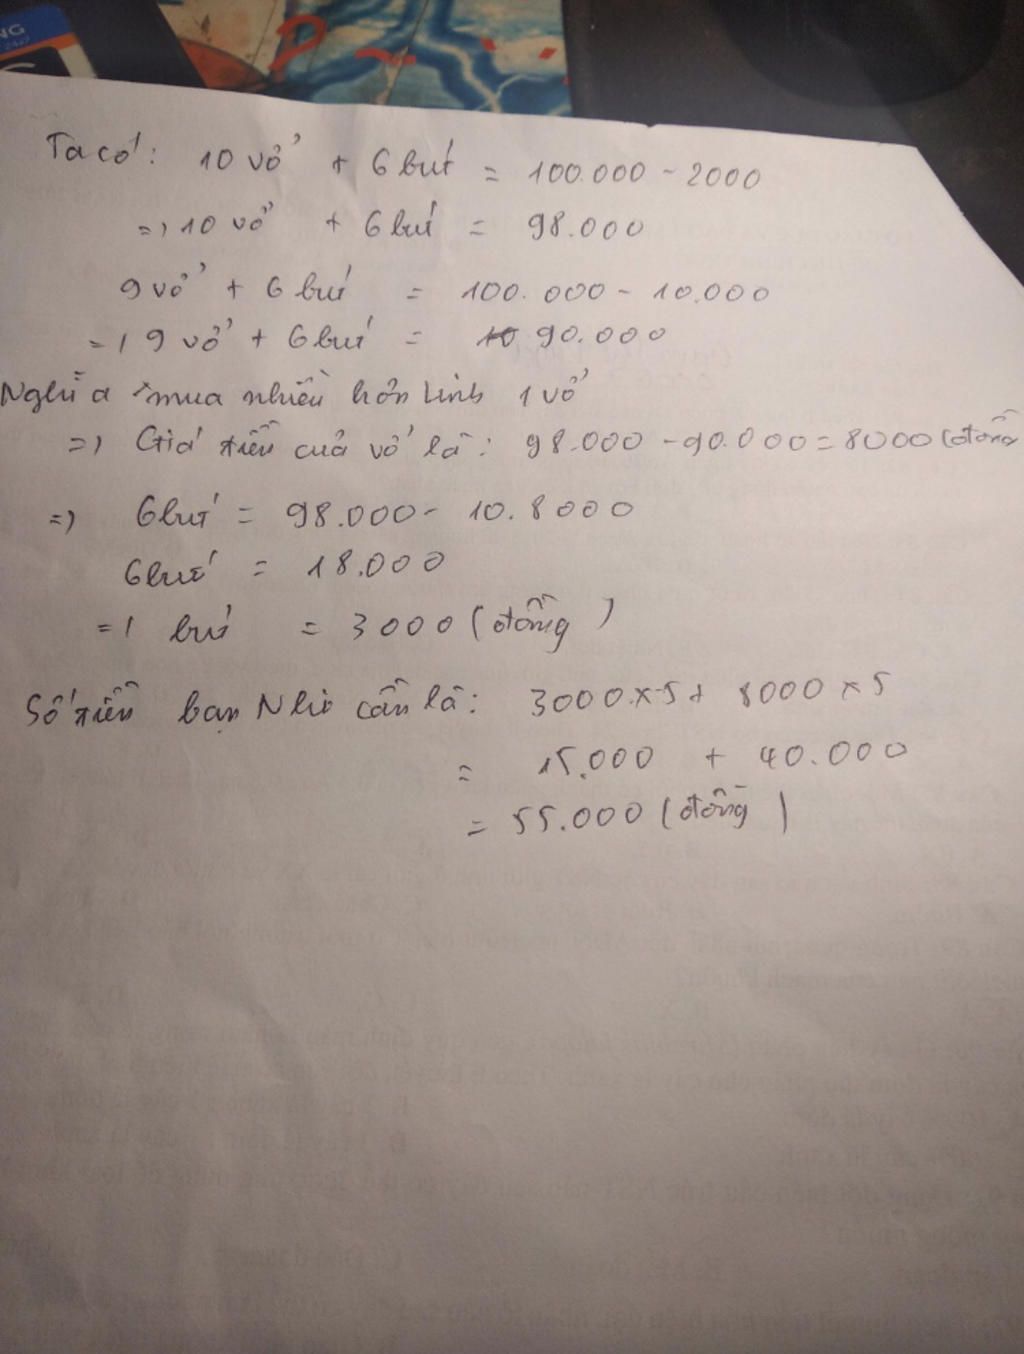 NG
24/7
Ta có: 10 vở + 6 bút = 100.000 - 2000
=) 10 vở + 6 bút = 98.000
9 vở + 6 bút = 100.000 - 10.000
=) 9 vở + 6 bút = 90.000
Nghĩa mua nhiều hơn Linh 1 vở
=) Giá tiền của vở là: 98.000 - 90.000 = 8000 (đồng
=) 6 bút = 98.000 - 10.8000
6 bút = 18.000
=) bút = 3000 (đồng)
Số tiền bạn Nhi cần là: 3000 x 5 + 8000 x 5
= 15.000 + 40.000
= 55.000 (đồng)